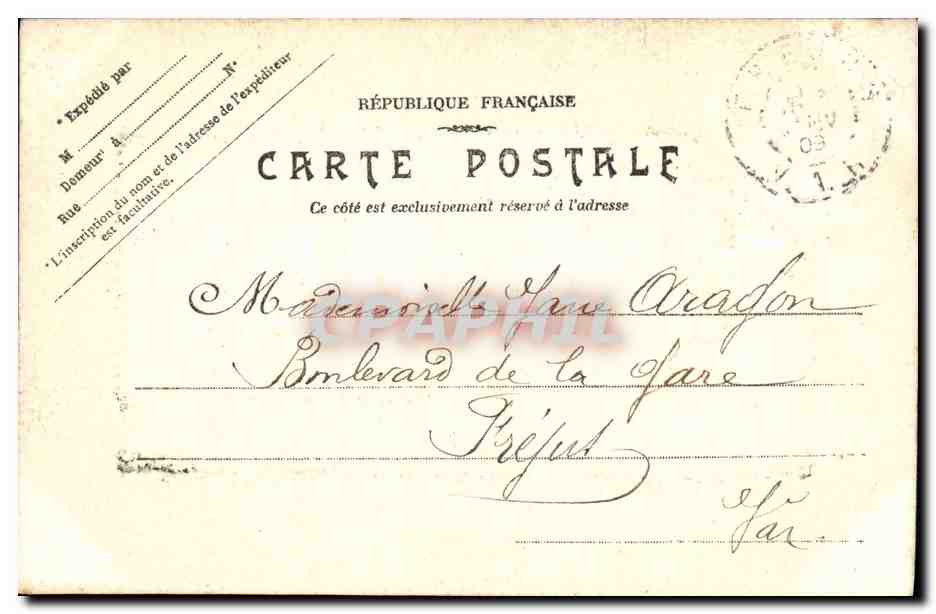 * Expédié par
M
Demeurt à N°
Rue
* L'inscription du nom et de l'adresse de l'expéditeur
est facultative.
RÉPUBLIQUE FRANÇAISE
CARTE POSTALE
Ce côté est exclusivement réservé à l'adresse
Mademoiselle Jane Aragon
Boulevard de la Gare
Fréjus
Var
CPAPHIL
03
1